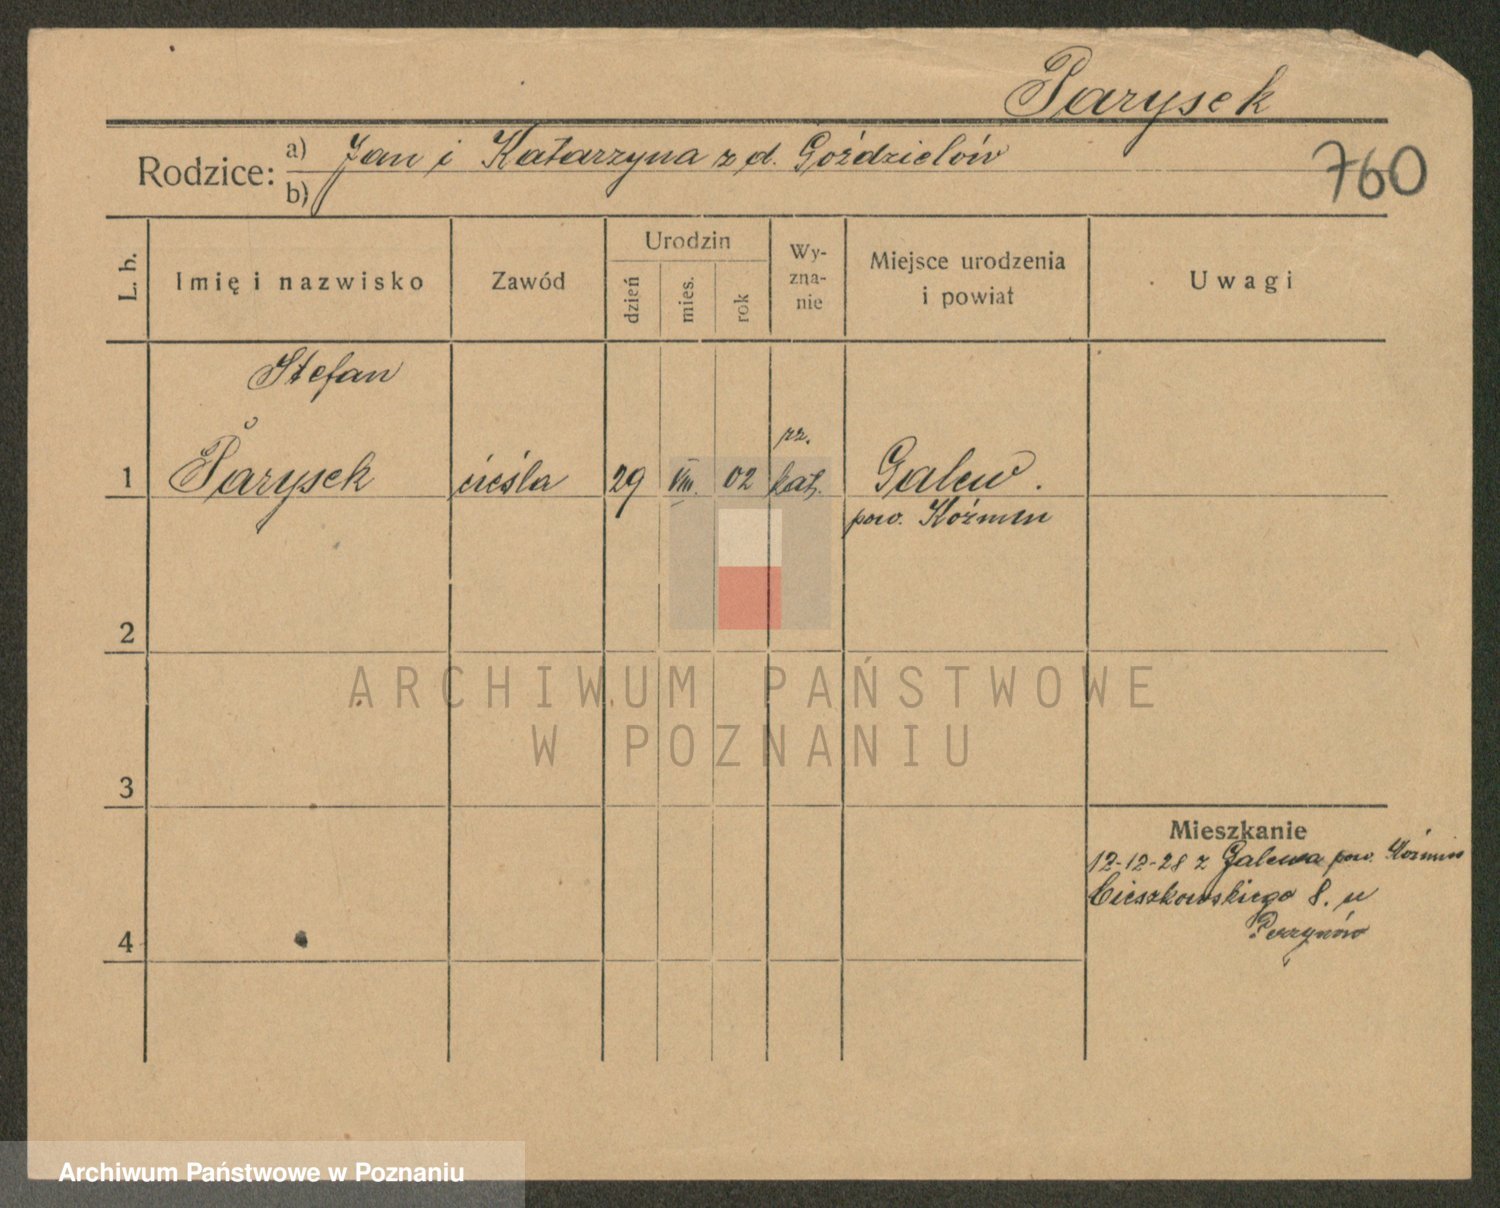 Parysek
Rodzice: a) Jan i Katarzyna z d. Goździelów
b)
760
L. b.
Imię i nazwisko
Zawód
Urodzin
dzień
mies.
rok
Wy-
zna-
nie
Miejsce urodzenia
i powiat
Uwagi
Stefan
1 Parysek cieśla 29 VIII. 02 rz.
kat. Galew.
pow. Koźmin
2
3
4
Mieszkanie
12-12-28 z Galewa pow. Koźmin
Cieszkowskiego 8. u
Perzynów
ARCHIWUM PAŃSTWOWE
W POZNANIU
Archiwum Państwowe w Poznaniu